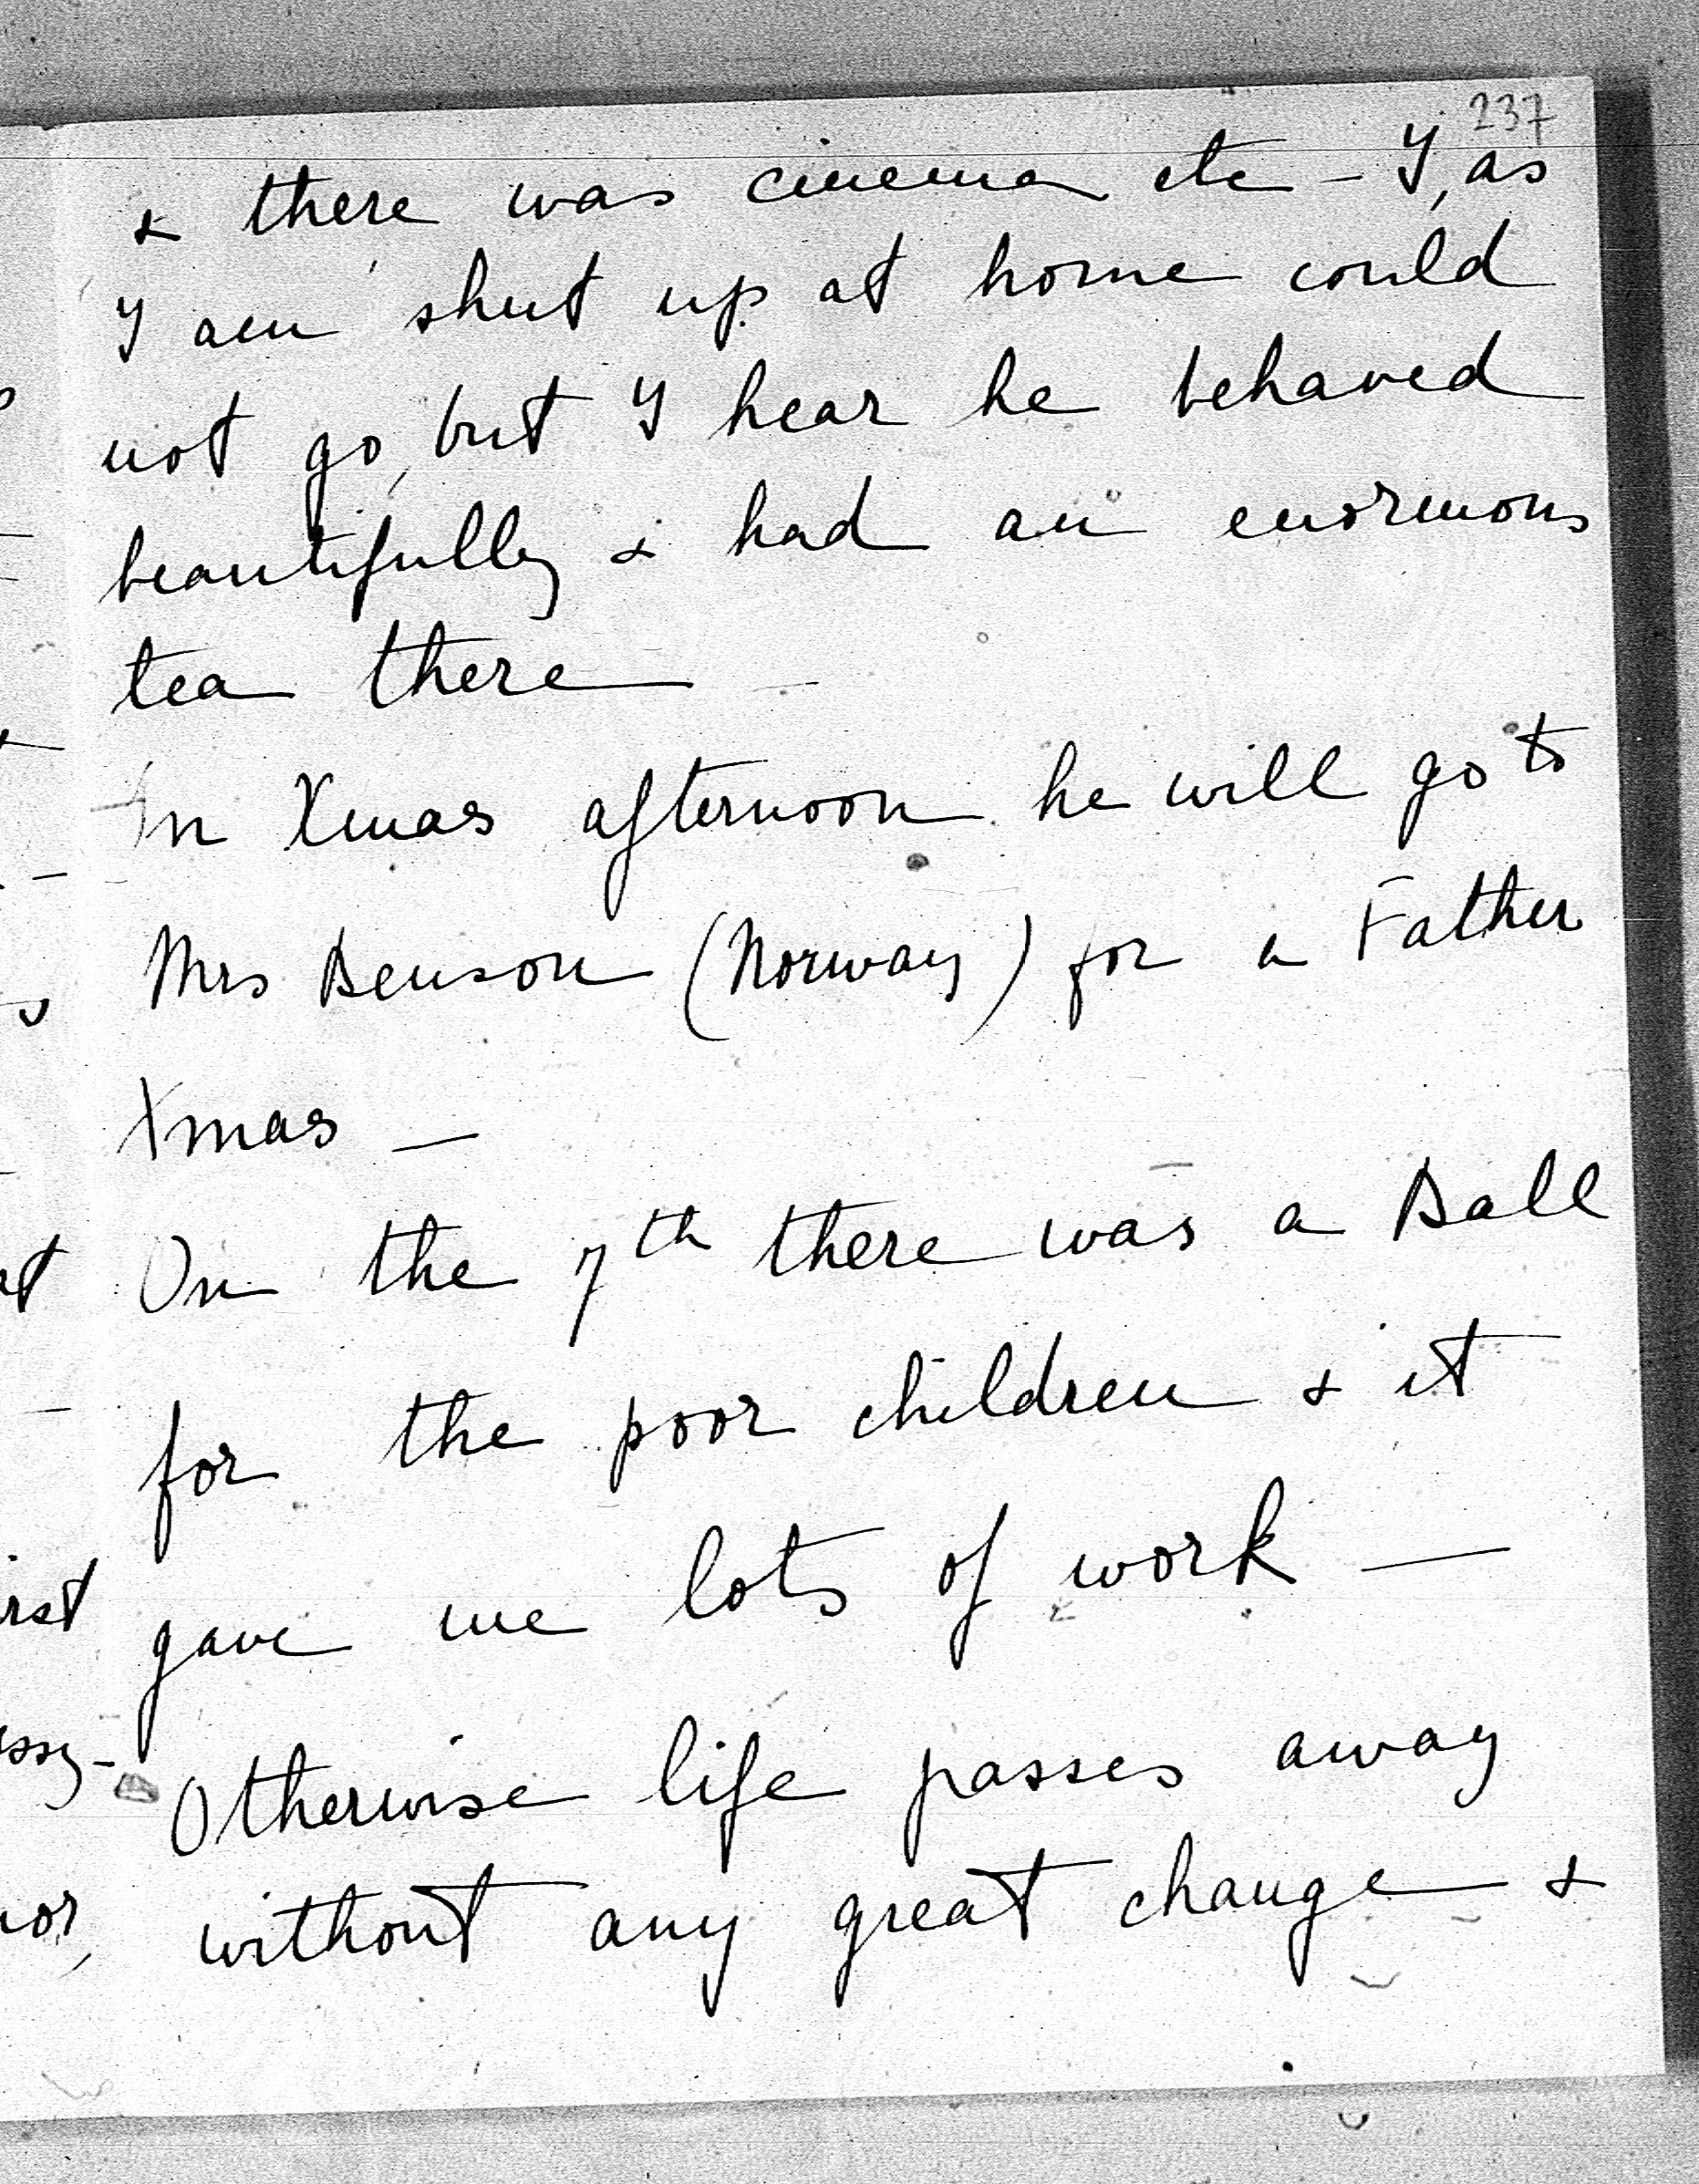 237
& there was cinema etc - I, as
I am shut up at home could
not go, but I hear he behaved
beautifully & had an enormous
tea there -
In Xmas afternoon he will go to
Mrs Benson (Norway) for a Father
Xmas -
On the 7th there was a Ball
for the poor children & it
gave me lots of work -
Otherwise life passes away
without any great change &